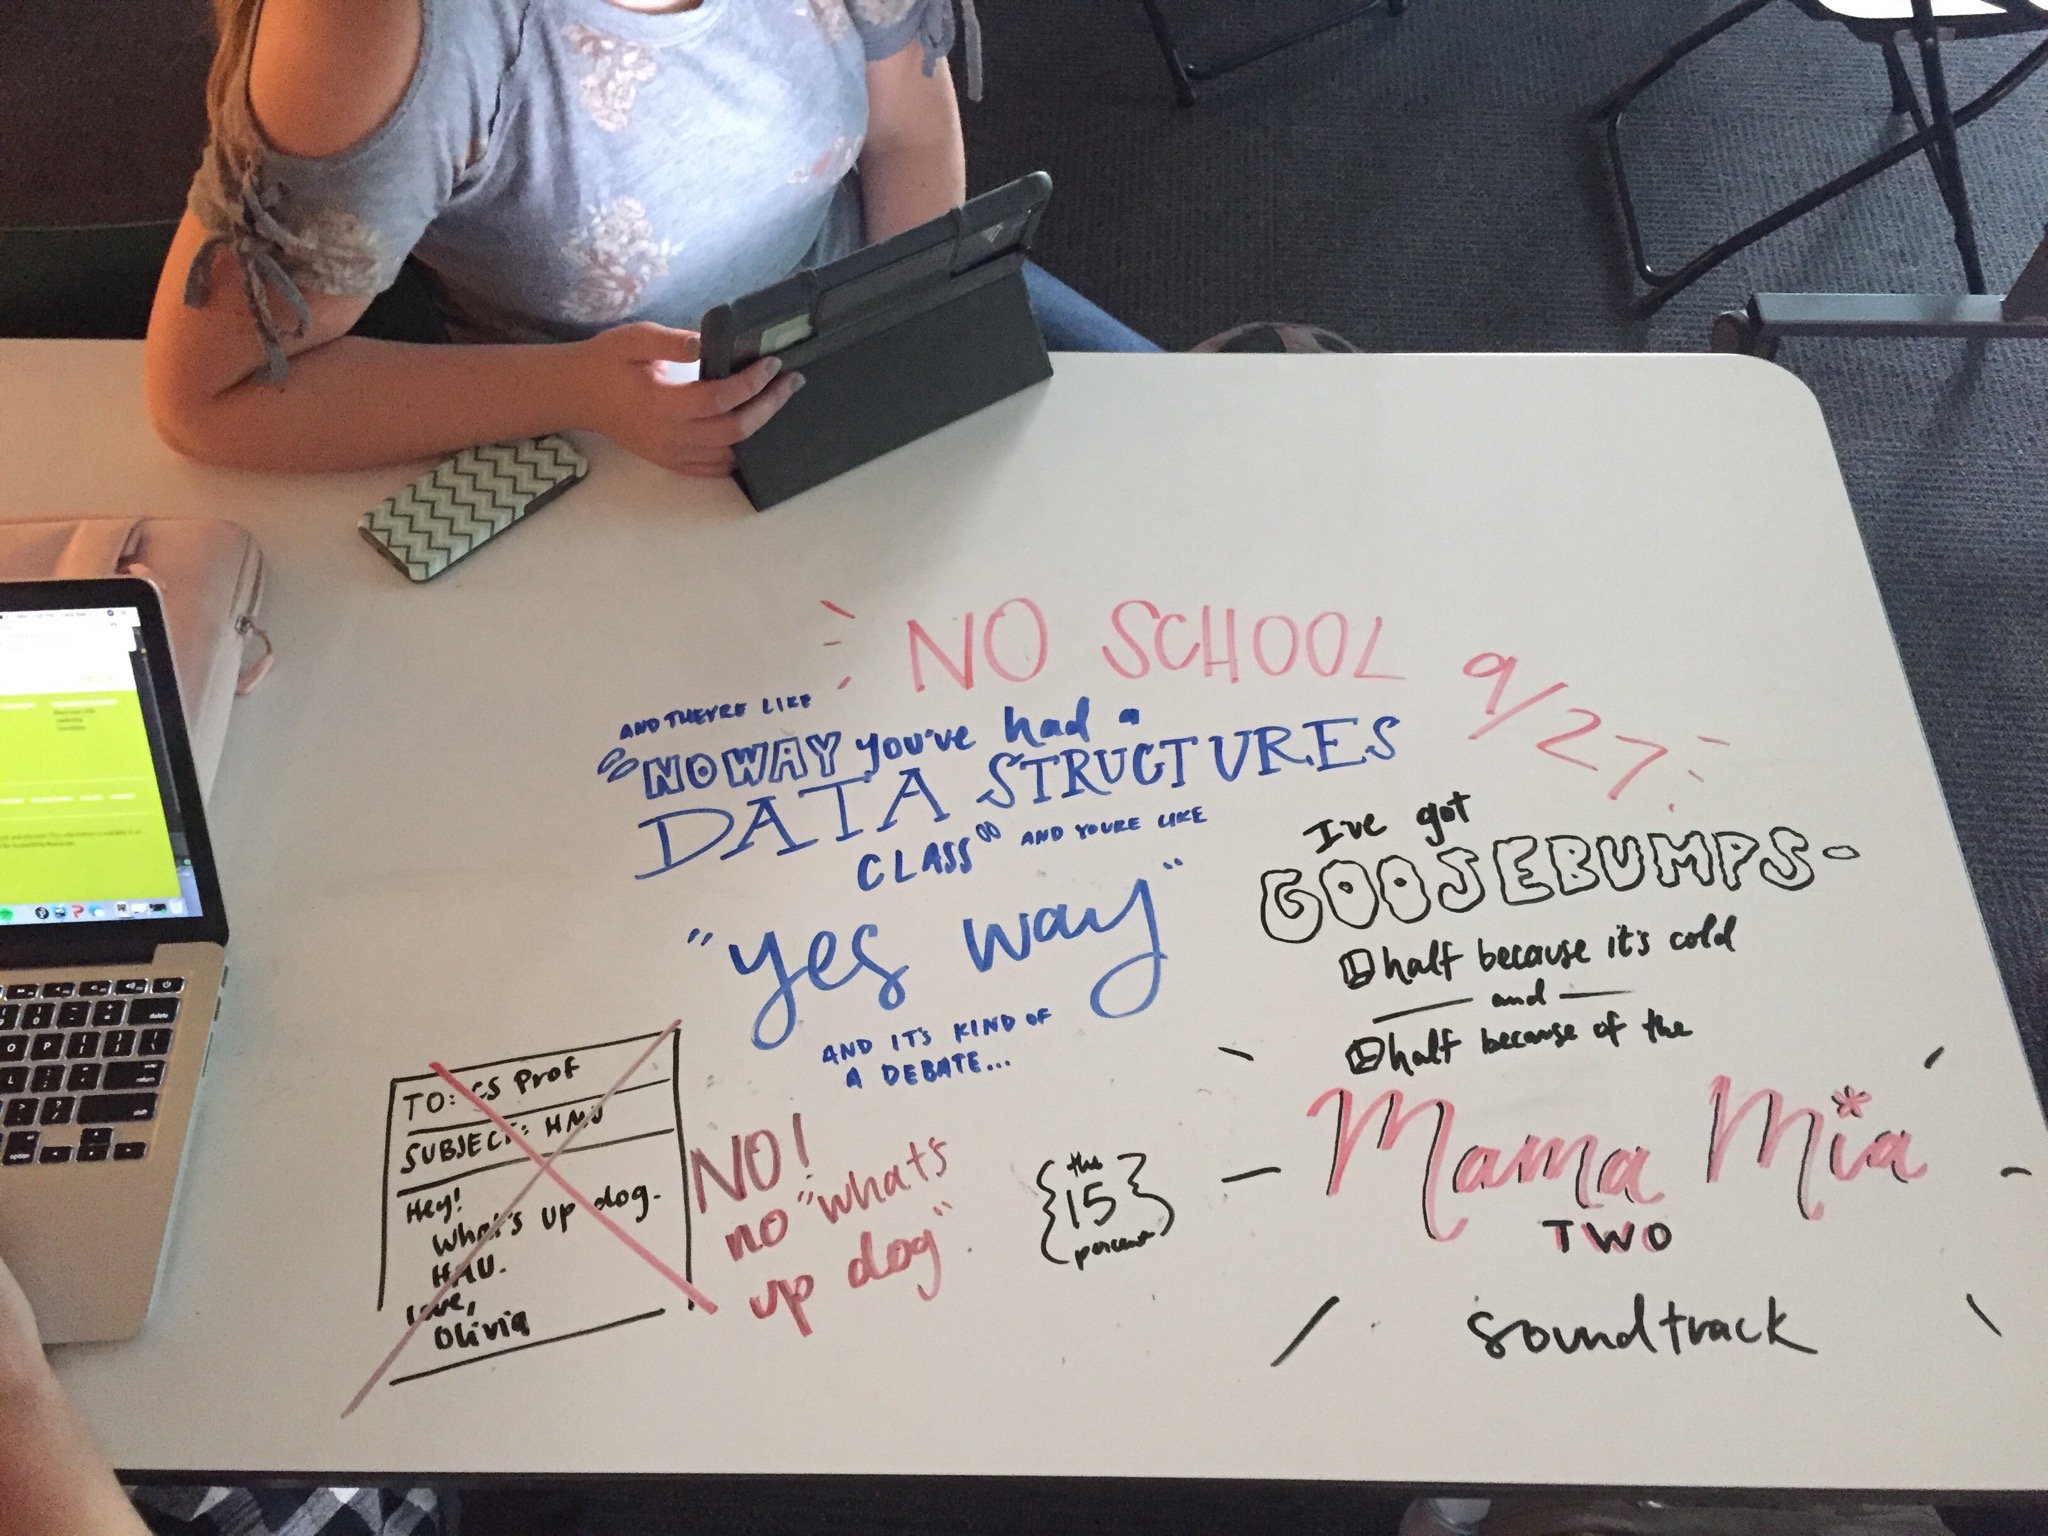 NO SCHOOL 9/27
AND THEYRE LIKE
"NO WAY you've had a
DATA STRUCTURES
CLASS" AND YOURE LIKE
"yes way"
AND IT'S KIND OF
A DEBATE...
I've got
GOOSEBUMPS-
half because it's cold
and
half because of the
Mama Mia
TWO
soundtrack
TO: CS Prof
SUBJECT: HMU
Hey!
What's up dog.
HMU.
love,
Olivia
NO!
no "whats
up dog"
{the
15
percent}
delete